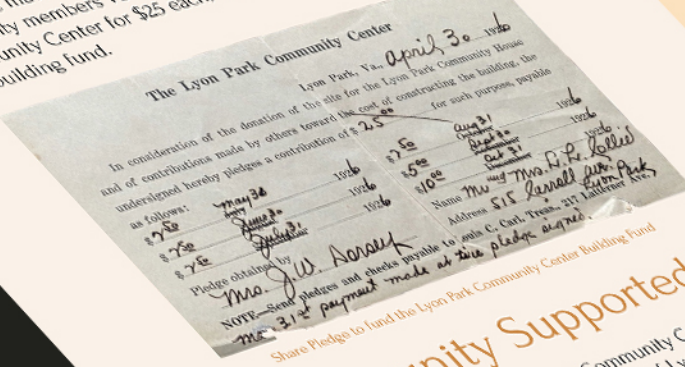 ity members
unity Center for $25 each,
building fund.
The Lyon Park Community Center
Lyon Park, Va., April 30 1926
In consideration of the donation of the site for the Lyon Park Community House
and of contributions made by others toward the cost of constructing the building, the
undersigned hereby pledges a contribution of $ 25 00 for such purpose, payable
as follows:
$ 2 50 May 30 1926
$ 2 50 June 30 1926
$ 2 50 July 31 1926
$ 2 50 Aug 31 1926
$ 5 00 Sept 30 1926
$ 10 00 Oct 31 1926
Pledge obtained by
Mrs. J. W. Dorsey
Name Mr and Mrs.
Address 515 Ave. Lyon Park
NOTE—Send pledges and checks payable to C. Carl, Treas., 217 Ave.
payment made at time pledge signed.
Share Pledge to fund the Lyon Park Community Center Building Fund
nity Supported
Community C